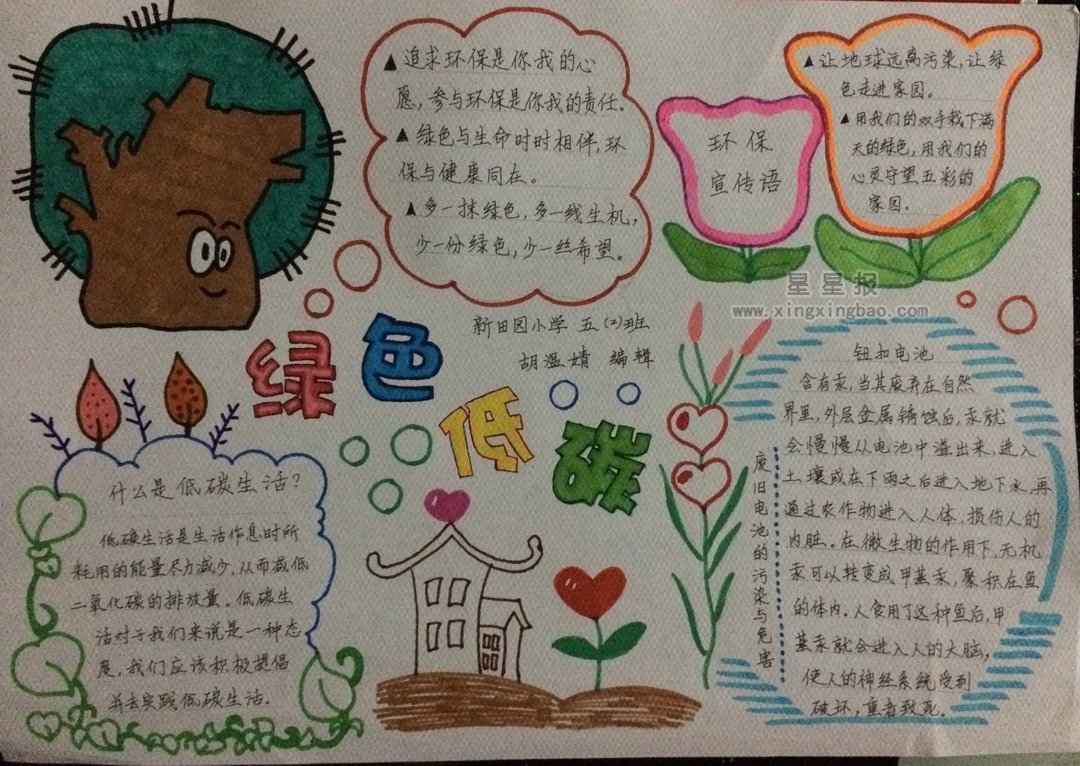 ▲追求环保是你我的心
愿，参与环保是你我的责任。
▲绿色与生命时时相伴，环
保与健康同在。
▲多一抹绿色，多一线生机，
少一份绿色，少一丝希望。
环保
宣传语
▲让地球远离污染，让绿
色走进家园。
▲用我们的双手栽下满
天的绿色，用我们的
心灵守望五彩的
家园。
星星报
www.xingxingbao.com
新田园小学 五(2)班
胡温婧 编辑
绿色
低碳
什么是低碳生活？
低碳生活是生活作息时所
耗用的能量尽力减少，从而减低
二氧化碳的排放量。低碳生
活对于我们来说是一种态
度，我们应该积极提倡
并去实践低碳生活。
废旧电池的污染与危害
钮扣电池
含有汞，当其废弃在自然
界里，外层金属锈蚀后，汞就
会慢慢从电池中溢出来，进入
土壤或在下雨之后进入地下水，再
通过农作物进入人体，损伤人的
内脏。在微生物的作用下，无机
汞可以转变成甲基汞，聚积在鱼
的体内。人食用了这种鱼后，甲
基汞就会进入人的大脑，
使人的神经系统受到
破坏，重者致死。